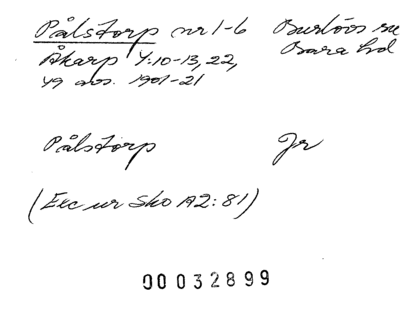 Pålstorp nr 1-6 Burlövs sn
Åkarp Y:10-13, 22, Bara hd
49 avs. 1901-21
Pålstorp Jr
(Exc ur Sko A2:81)
00032899